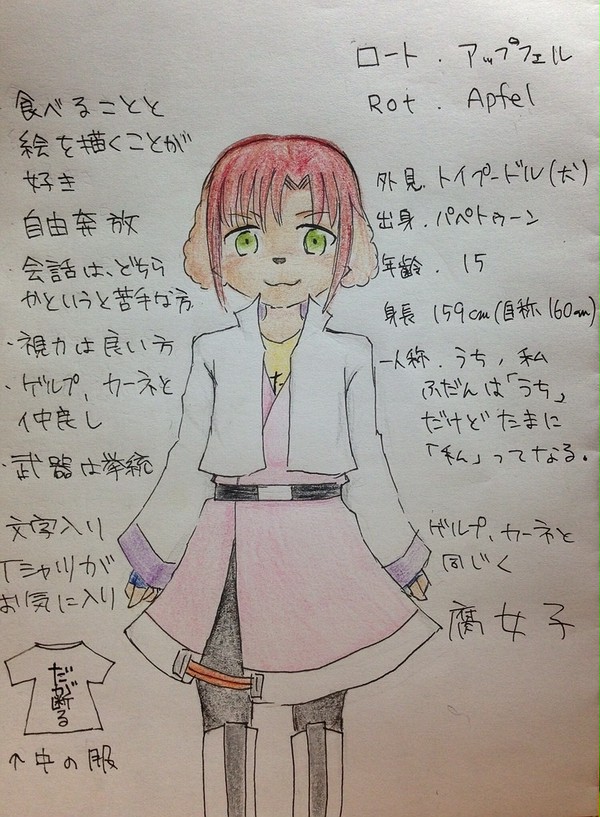 ロート．アップフェル
Rot．Apfel
食べることと
絵を描くことが
好き
自由奔放
・会話は、どちら
かというと苦手な方
・視力は良い方
・ゲルプ、カーネと
仲良し
・武器は拳銃
文字入り
Tシャツが
お気に入り
だが断る
↑中の服
外見．トイプードル(犬)
出身．パペトゥーン
年齢．15
身長 159cm(自称160cm)
一人称．うち，私
ふだんは「うち」
だけどたまに
「私」ってなる。
ゲルプ、カーネと
同じく
腐女子
た